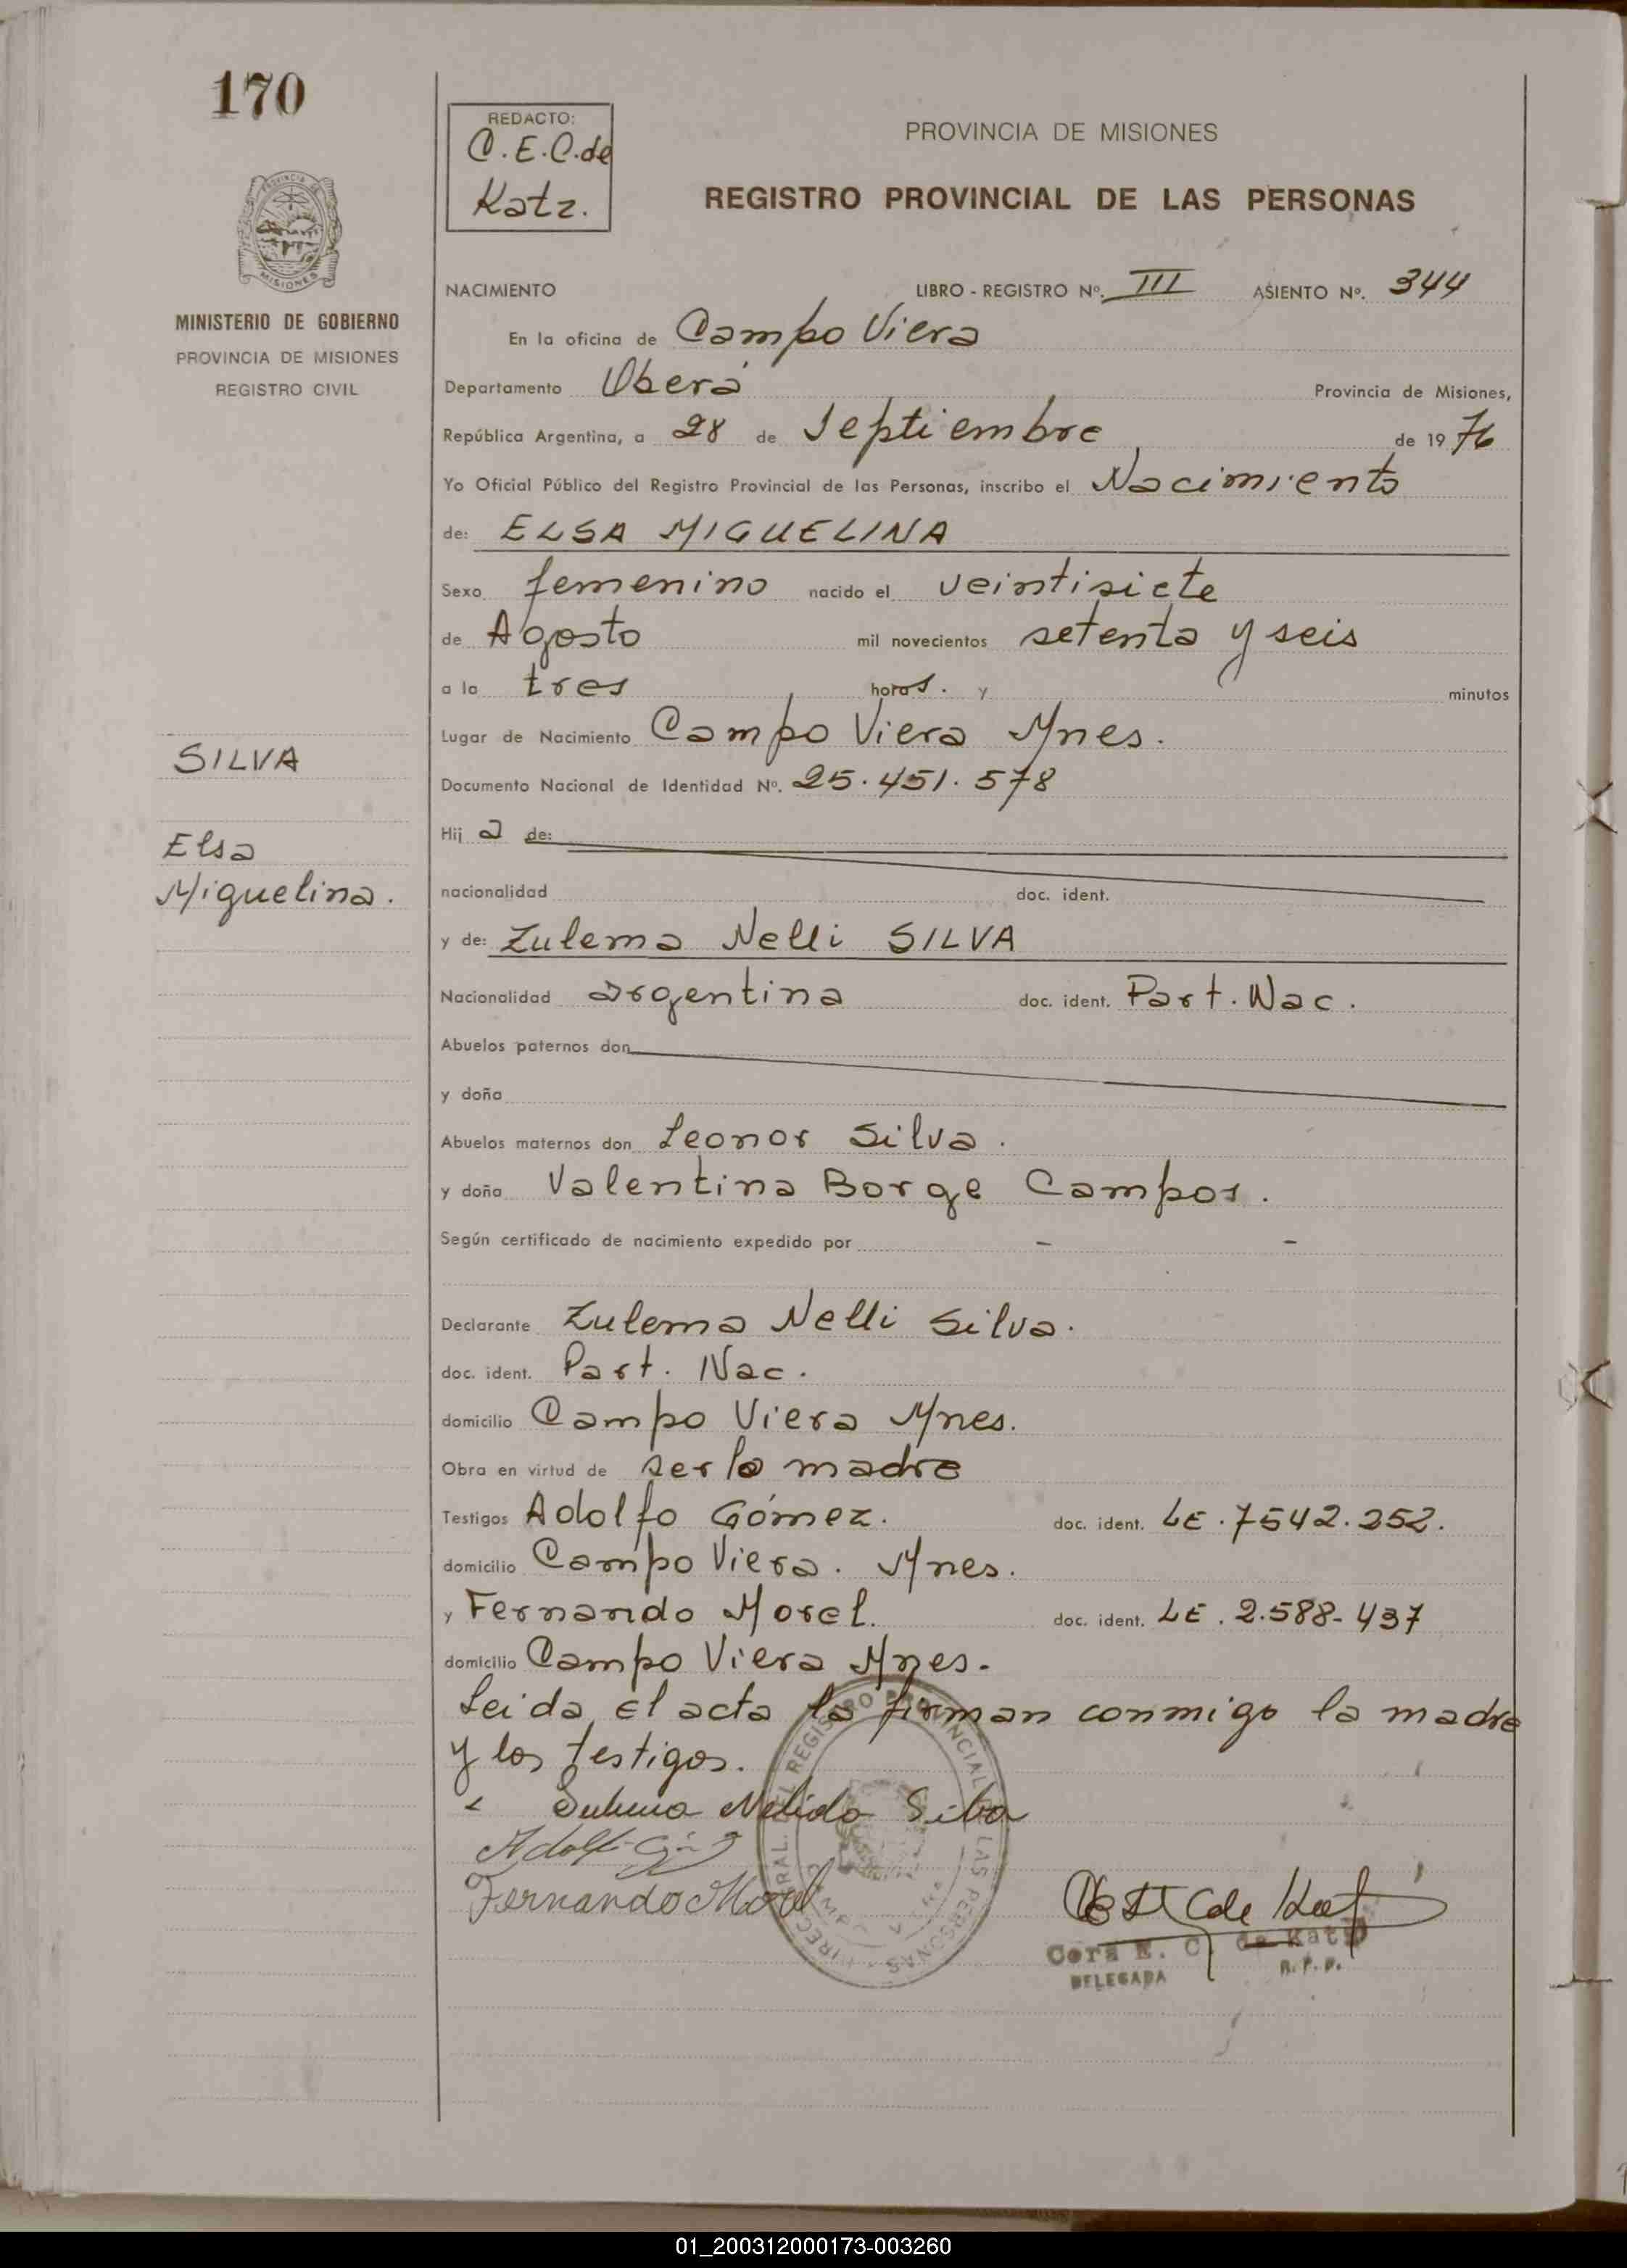 170
REDACTO:
C.E.C.de
Katz.
PROVINCIA DE MISIONES
REGISTRO PROVINCIAL DE LAS PERSONAS
PROVINCIA DE
MISIONES
MINISTERIO DE GOBIERNO
PROVINCIA DE MISIONES
REGISTRO CIVIL
NACIMIENTO LIBRO - REGISTRO Nº. III ASIENTO Nº. 344
En la oficina de Campo Viera
Departamento Oberá Provincia de Misiones,
República Argentina, a 28 de Septiembre de 1976
Yo Oficial Público del Registro Provincial de las Personas, inscribo el Nacimiento
de: ELSA MIGUELINA
Sexo femenino nacido el veintisiete
de Agosto mil novecientos setenta y seis
a la tres horas. y minutos
Lugar de Nacimiento Campo Viera Mnes.
Documento Nacional de Identidad Nº. 25.451.578
SILVA
Elsa
Miguelina.
Hij a de:
nacionalidad doc. ident.
y de: Zulema Nelli SILVA
Nacionalidad argentina doc. ident. Part. Nac.
Abuelos paternos don
y doña
Abuelos maternos don Leonor Silva.
y doña Valentina Borge Campos.
Según certificado de nacimiento expedido por - -
Declarante Zulema Nelli Silva.
doc. ident. Part. Nac.
domicilio Campo Viera Mnes.
Obra en virtud de ser la madre
Testigos Adolfo Gómez. doc. ident. LE. 7542.252.
domicilio Campo Viera. Mnes.
y Fernando Morel. doc. ident. LE. 2.588-437
domicilio Campo Viera Mnes.
Leida el acta la firman conmigo la madre
y los testigos.
Nelida Silva
Adolfo
Fernando Morel
DEL REGISTRO PROVINCIAL DE LAS PERSONAS
C de Katz
Cora E. C. de Katz
DELEGADA R.P.P.
01_200312000173-003260